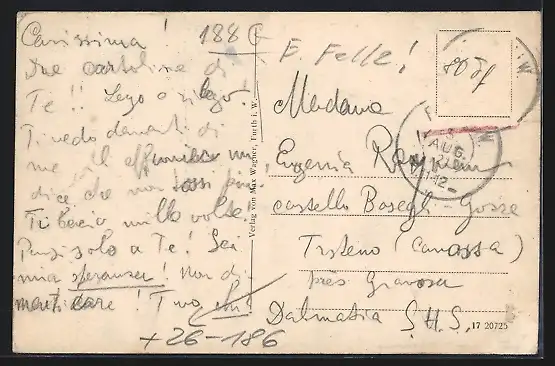 Carissima!
188
Due cartoline di
Te!! Leggo e rileggo!
Ti vedo davanti di
me
dice che non tossi più
Ti bacio mille volte!
Pensi solo a Te! Sei
mia speranza! Non di-
menticare! Tuo
+26-186
Verlag von Max Wagner, Furth i. W.
Madame
Eugenia
castello Basegli-Gozze
Trsteno (Canossa)
près Gravosa
Dalmatia S.H.S.
AUG.
W
17 20725